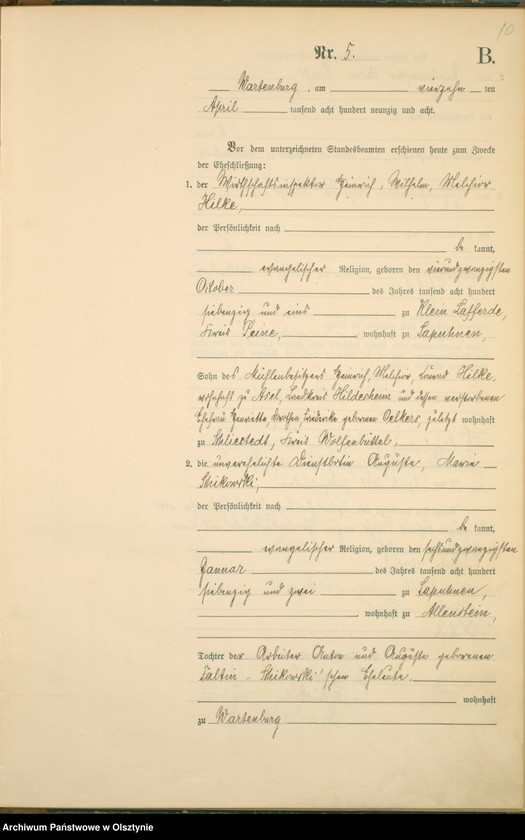 10
Nr. 5. B.
Wartenburg, am vierzehn ten
April tausend acht hundert neunzig und acht.
Vor dem unterzeichneten Standesbeamten erschienen heute zum Zwecke
der Eheschließung:
1. der Wirthschaftsinspektor Heinrich, Wilhelm, Melchior
Hilke,
der Persönlichkeit nach
be kannt,
evangelischer Religion, geboren den vierundzwanzigsten
October des Jahres tausend acht hundert
siebenzig und eins zu Klein Lafferde,
Kreis Peine, wohnhaft zu Sapuhnen,
Sohn des Mühlenbesitzers Heinrich, Melchior, Hilke,
wohnhaft zu Asel, Landkreis Hildesheim und dessen verstorbenen
Ehefrau Henriette, Dorothea, Friederike geborenen Oelkers, zuletzt wohnhaft
zu Kreis Wolfenbüttel.
2. die unverehelichte Dienstbotin Auguste, Marie
der Persönlichkeit nach
be kannt,
evangelischer Religion, geboren den sechsundzwanzigsten
Januar des Jahres tausend acht hundert
siebenzig und zwei zu Sapuhnen,
wohnhaft zu Allenstein,
Tochter der Arbeiter Anton und Auguste geborenen
schen Eheleute.
wohnhaft
zu Wartenburg
Archiwum Państwowe w Olsztynie